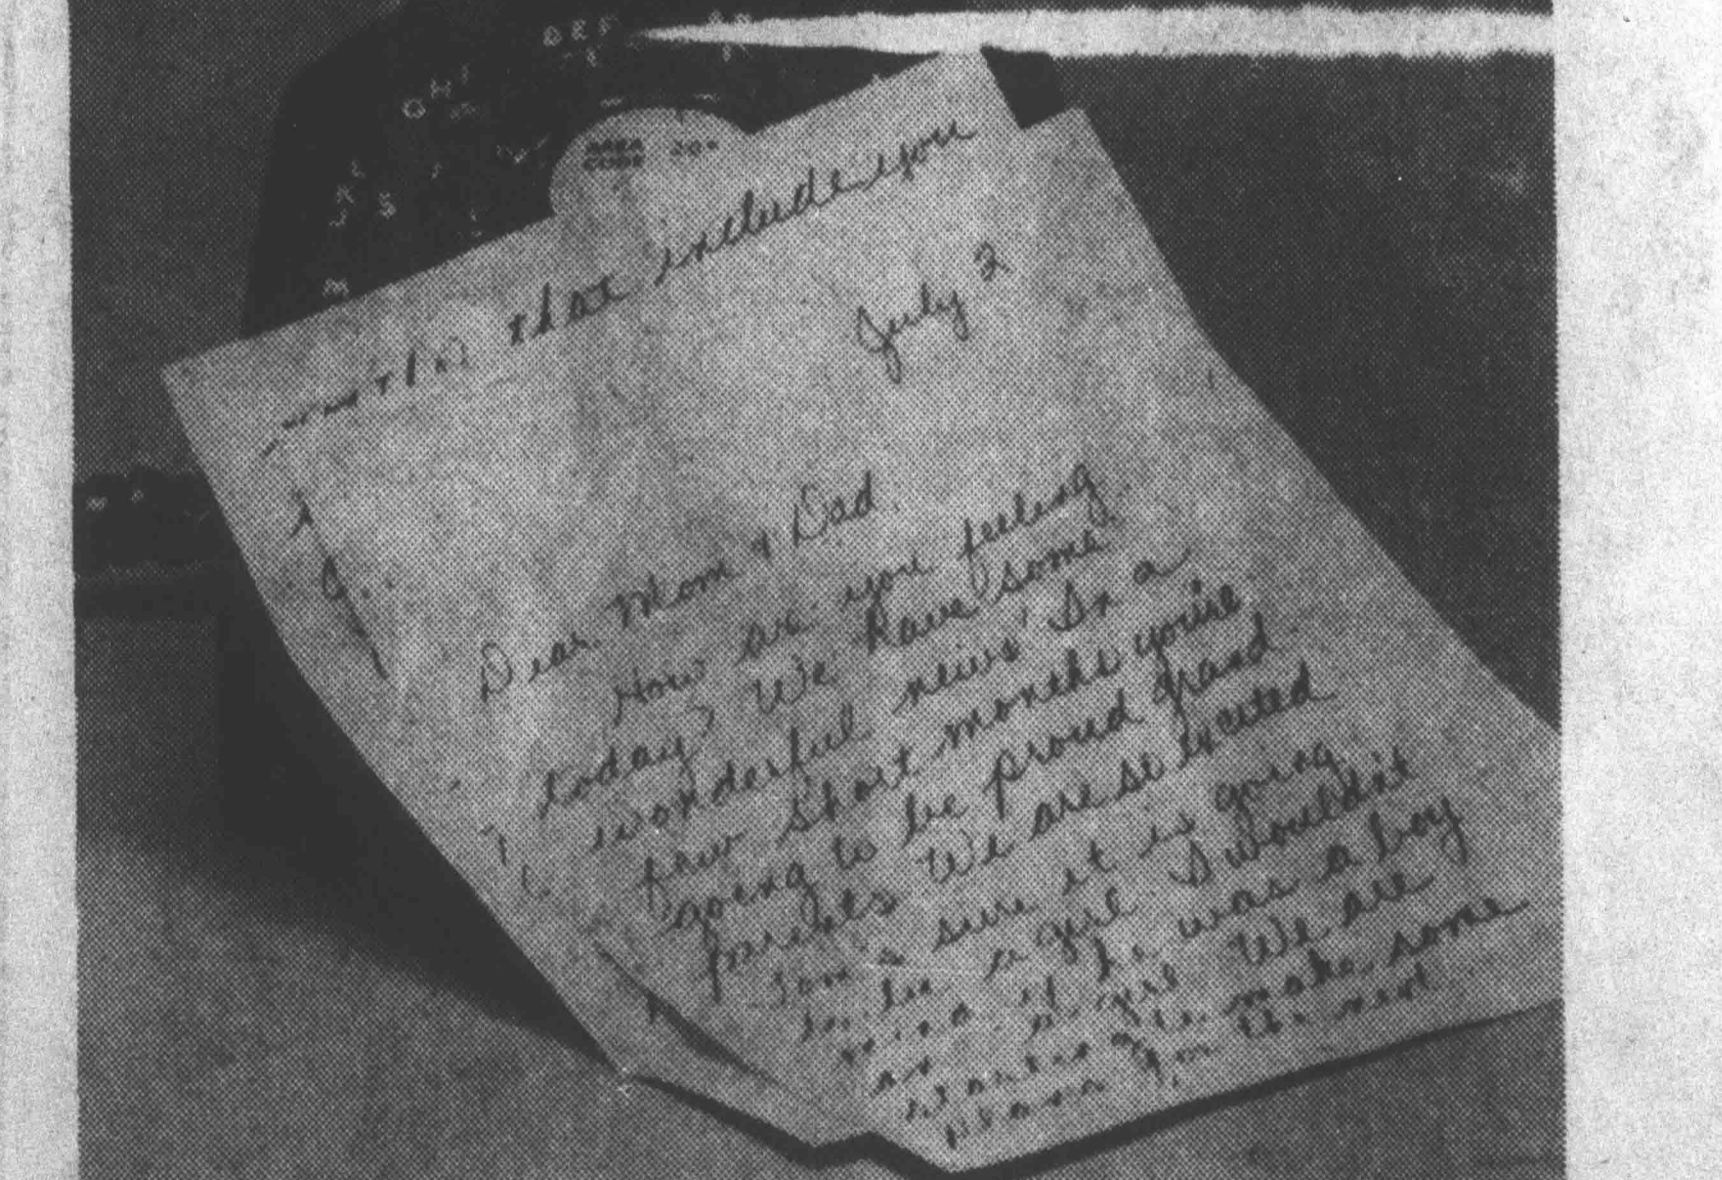 DEF
GHI
AREA
CODE 204
that include you
July 2
Dear Mom & Dad
How are you feeling
today? We have some
wonderful news! In a
few short months you're
going to be proud grand
parents We are so excited
sure it is going
to be a girl I wouldn't
mind if he was a boy
as a girl We are
make some
for the next